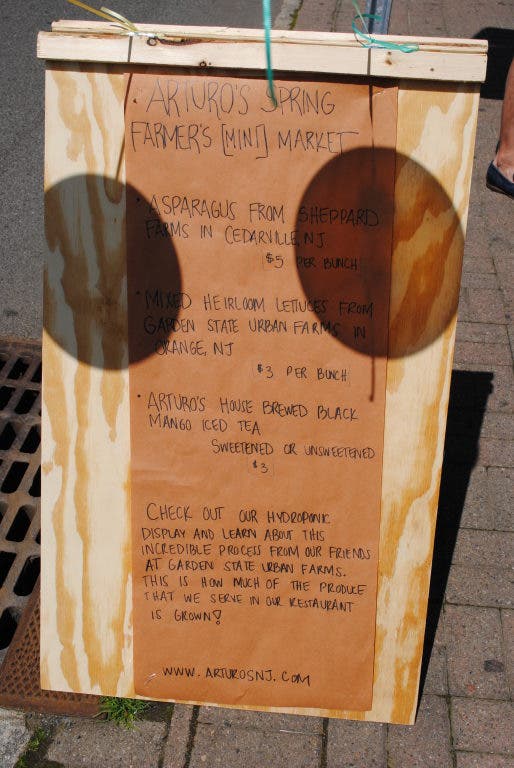 ARTURO'S SPRING
FARMER'S [MINI] MARKET
• ASPARAGUS FROM SHEPPARD
FARMS IN CEDARVILLE, NJ
$5 PER BUNCH
• MIXED HEIRLOOM LETTUCES FROM
GARDEN STATE URBAN FARMS IN
ORANGE, NJ
$3 PER BUNCH
• ARTURO'S HOUSE BREWED BLACK
MANGO ICED TEA
SWEETENED OR UNSWEETENED
$3
CHECK OUT OUR HYDROPONIC
DISPLAY AND LEARN ABOUT THIS
INCREDIBLE PROCESS FROM OUR FRIENDS
AT GARDEN STATE URBAN FARMS.
THIS IS HOW MUCH OF THE PRODUCE
THAT WE SERVE IN OUR RESTAURANT
IS GROWN!
WWW.ARTUROSNJ.COM